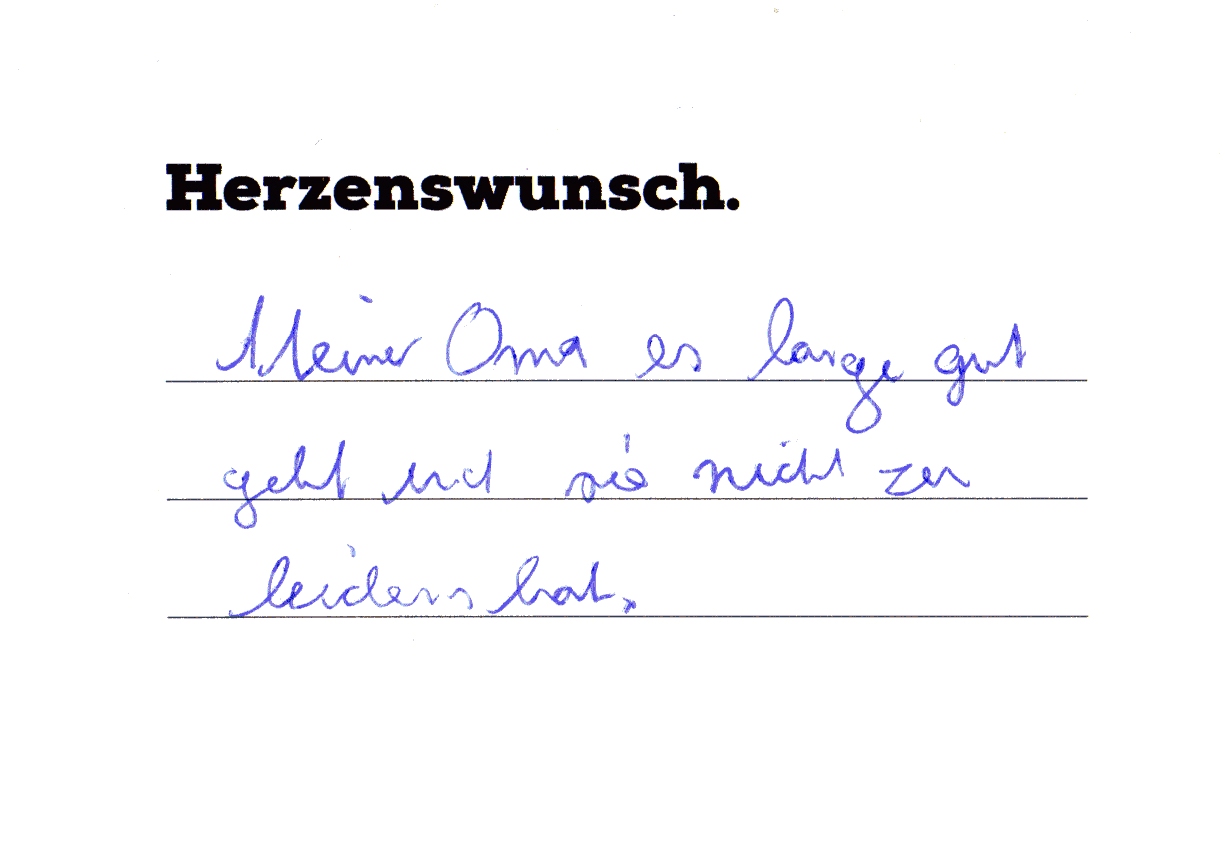 Herzenswunsch.
Meiner Oma es lange gut
geht und sie nicht zu
leiden hat.